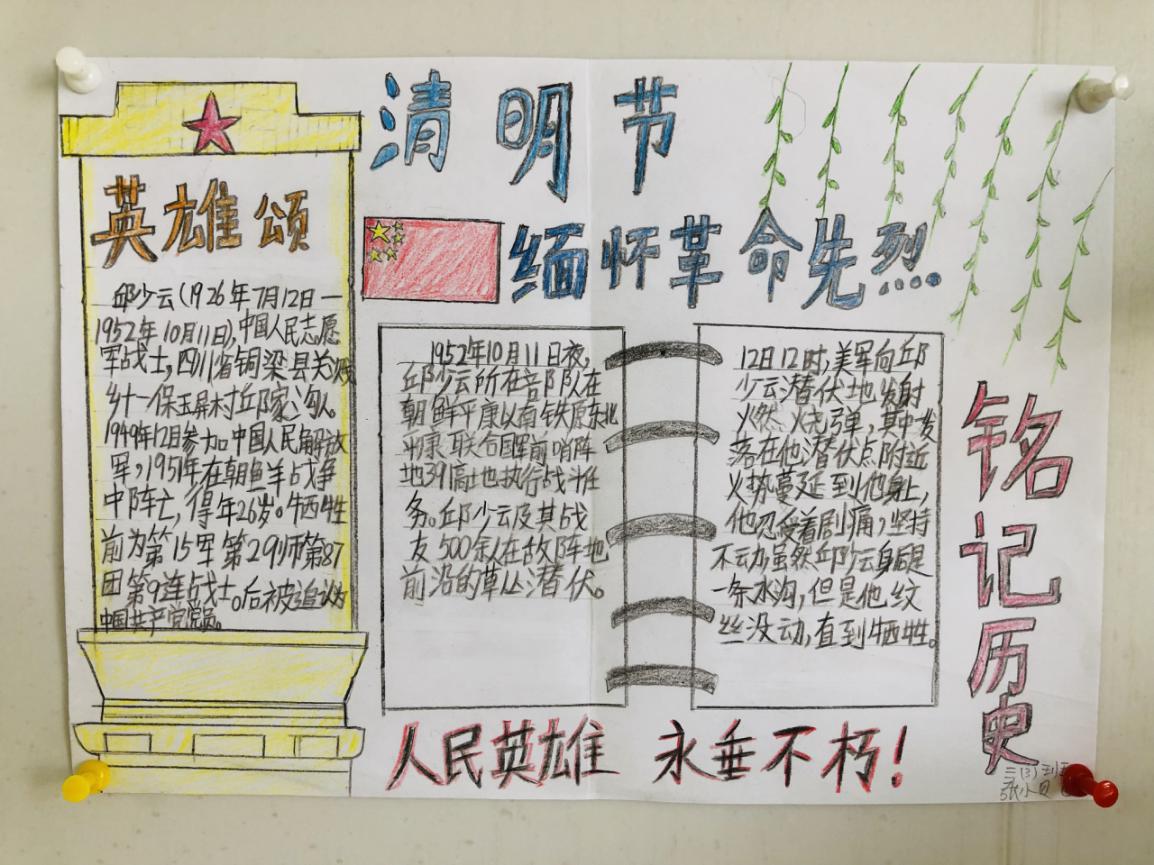 清明节
缅怀革命先烈
英雄颂
邱少云(1926年7月12日—
1952年10月11日),中国人民志愿
军战士,四川省铜梁县关溅
乡十一保玉屏村邱家沟人。
1949年12月参加中国人民解放
军,1951年在朝鲜战争
中阵亡,得年26岁。牺牲
前为第15军第29师第87
团第9连战士。后被追认为
中国共产党党员。
1952年10月11日夜,
邱少云所在部队在
朝鲜平康以南铁原东北
平康联合国军前哨阵
地391高地执行战斗任
务。邱少云及其战
友500余人在敌阵地
前沿的草丛潜伏。
12日12时,美军向邱
少云潜伏地发射
火燃烧弹,其中发
落在他潜伏点附近
火势蔓延到他身上,
他忍受着剧痛,坚持
不动虽然邱少云身后是
一条水沟,但是他纹
丝没动,直到牺牲。
铭记历史
人民英雄 永垂不朽!
三(3)班
张小